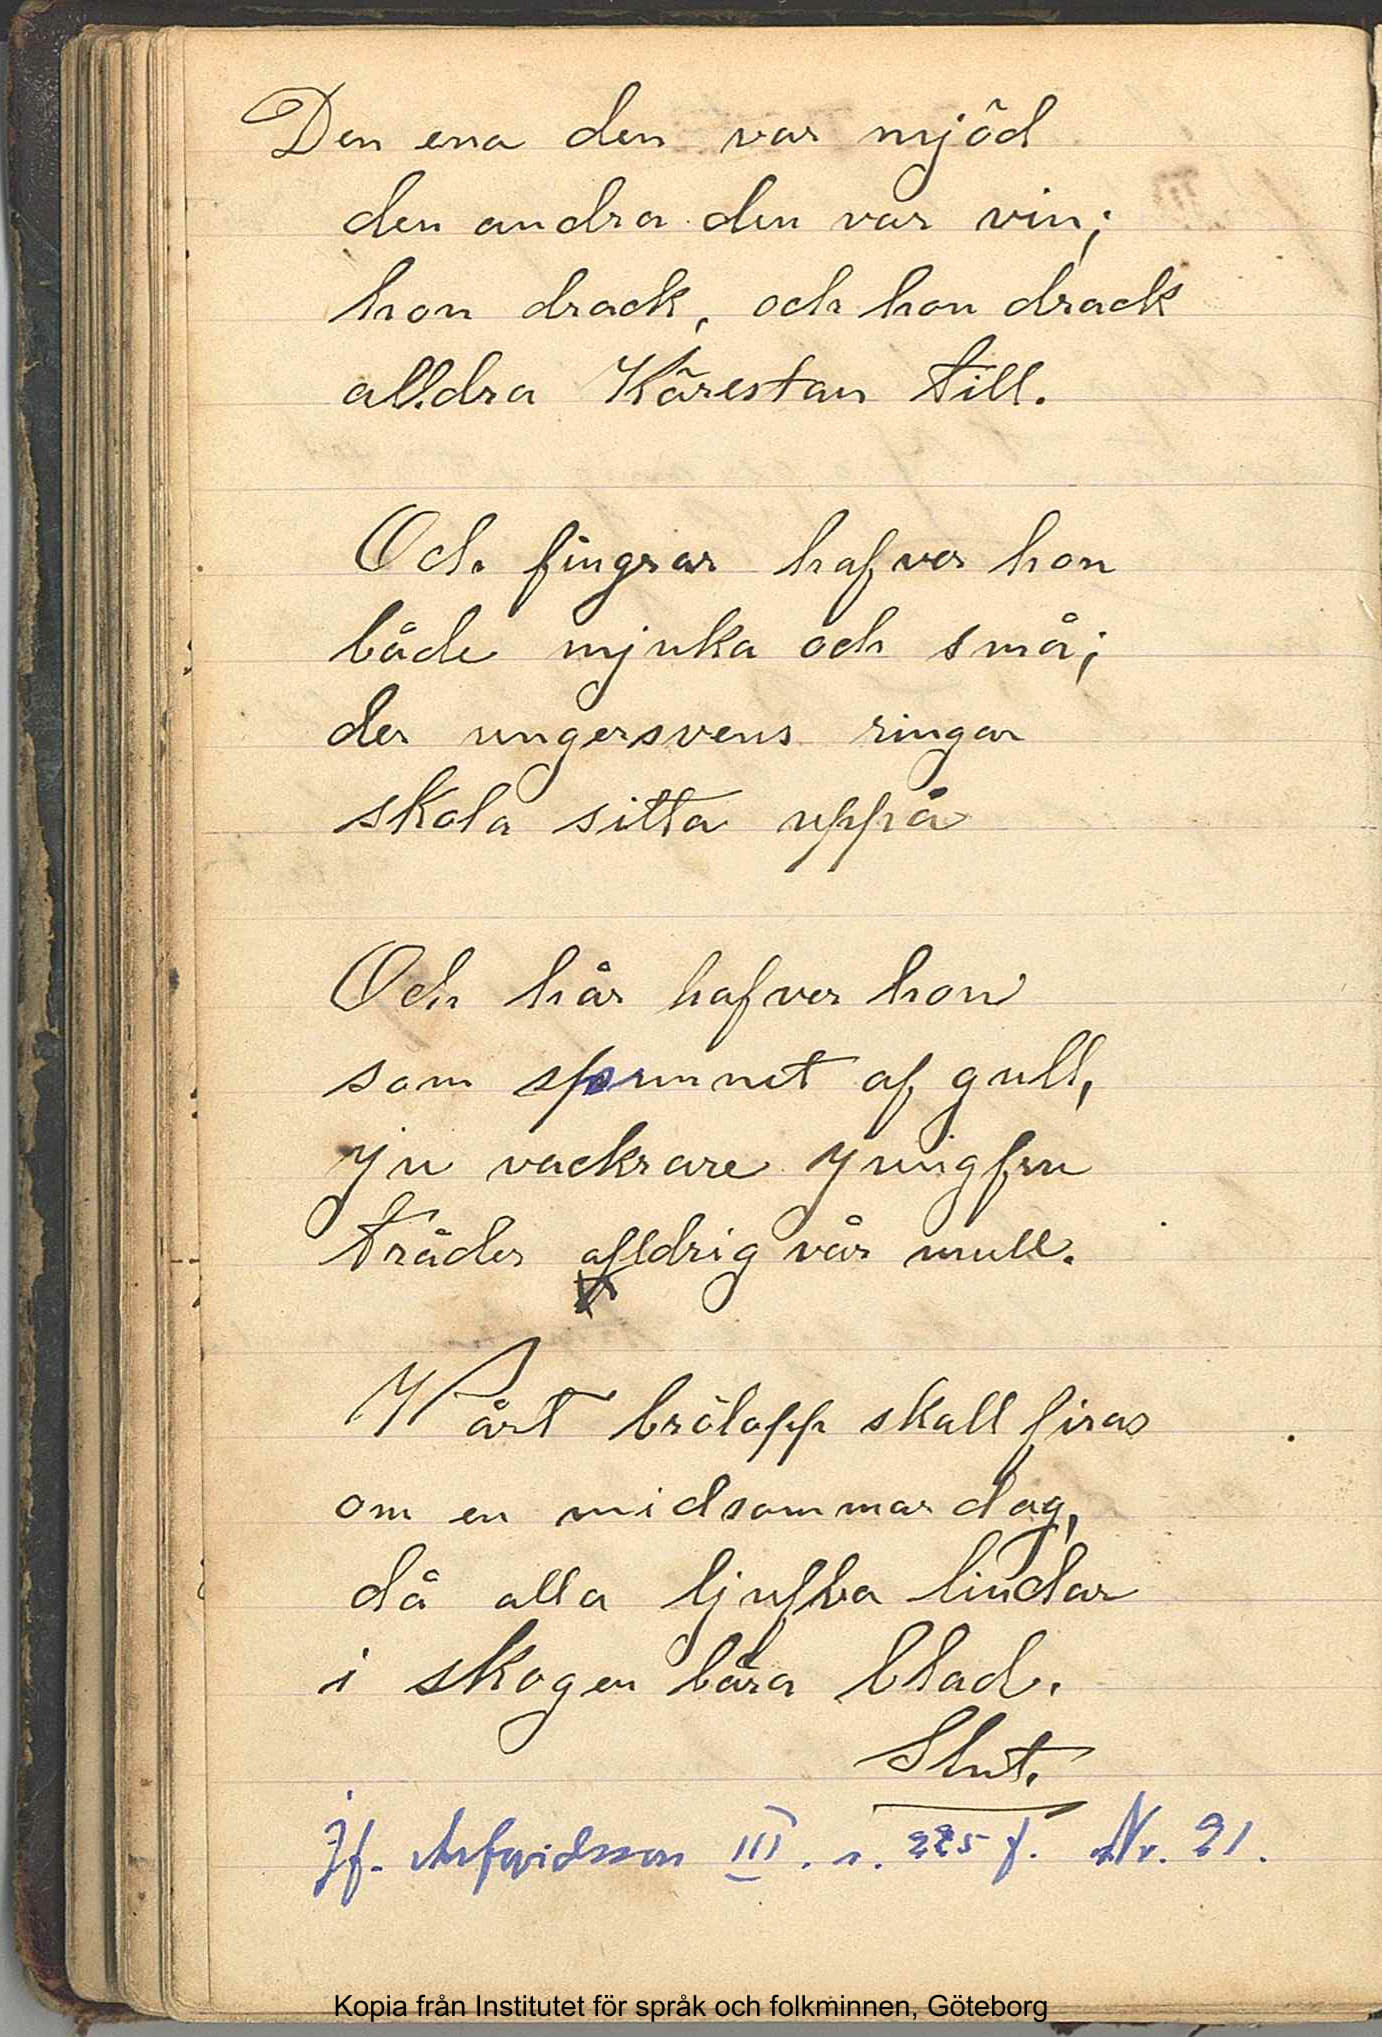 Den ena den var mjöd
den andra den var vin;
hon drack, och hon drack
alldra Kärestan till.
Och fingrar hafver hon
både mjuka och små;
der ungersvens ringar
skola sitta uppå
Och hår hafver hon
som spunnet af gull,
Ju vackrare Jungfru
träder alldrig vår mull.
Wårt brölopp skall firas
om en midsommar dag,
då alla ljufva lindar
i skogen bära blad.
Slut.
Jf. Arfvidsson III. s. 225 f. Nr. 21.
Kopia från Institutet för språk och folkminnen, Göteborg